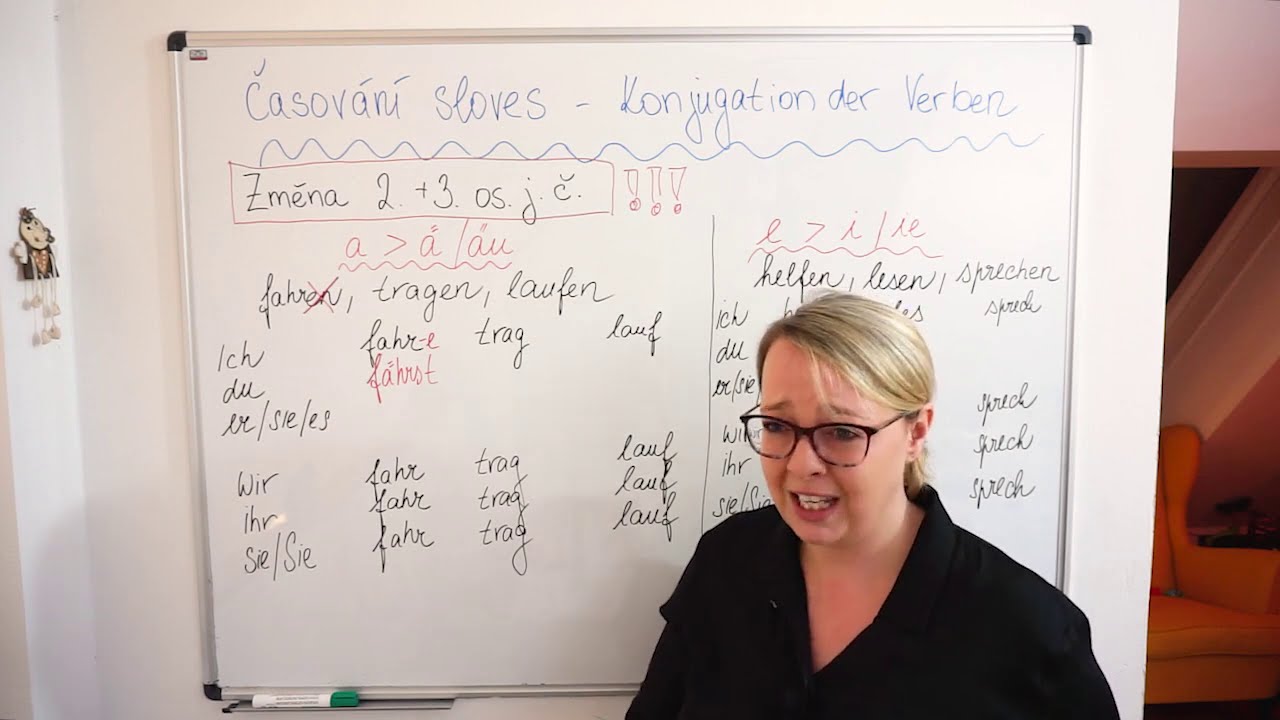 Časování sloves - Konjugation der Verben
Změna 2. +3. os. j. č. !!!
a > ä/äu
fahren, tragen, laufen
Ich fahr-e trag lauf
du fährst
er/sie/es
wir fahr trag lauf
ihr fahr trag lauf
sie/Sie fahr trag lauf
e > i/ie
helfen, lesen, sprechen
ich sprech
du
er/sie
wir sprech
ihr sprech
sie/Sie sprech